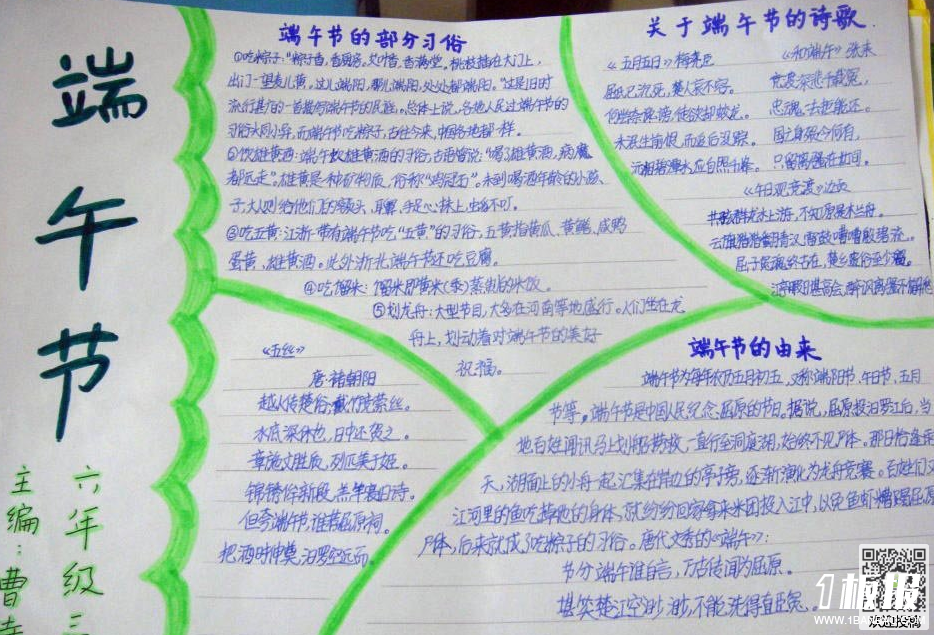 端午节
六年级三
主编：曹
端午节的部分习俗
①吃粽子："粽子香,香厨房,艾叶香,香满堂,桃枝插在大门上,
出门一望麦儿黄,这儿端阳,那儿端阳,处处都端阳。"这是旧时
流行甚广的一首描写端午节的民谣。总体上说,各地人民过端午节的
习俗大同小异,而端午节吃粽子,古往今来,中国各地都一样。
②饮雄黄酒：端午饮雄黄酒的习俗,古语曾说："喝了雄黄酒,病魔
都远走"。雄黄是一种矿物质,俗称"鸡冠石"。未到喝酒年龄的小孩
子,大人则给他们的额头、耳鼻、手足心抹上,虫邪不叮。
③吃五黄：江浙一带有端午节吃"五黄"的习俗。五黄指黄瓜、黄鳝、咸鸭
蛋黄、雄黄酒。此外浙北端午节还吃豆腐。
④吃馏米：馏米即黄米(黍)蒸制的米饭。
⑤划龙舟：大型节目,大多在河南等地盛行。人们坐在龙
舟上,划动着对端午节的美好
祝福。
关于端午节的诗歌
《五月五日》梅尧臣
屈氏已沉死,楚人哀不容。
何尝奈谗谤,徒欲却蛟龙。
未泯生前恨,而追后没踪。
沅湘碧潭水,应自照千峰。
《和端午》张耒
竞渡深悲千载冤,
忠魂一去讵能还。
国亡身殒今何有,
只留离骚在世间。
《午日观竞渡》边贡
共骇群龙水上游,不知原是木兰舟。
云旗猎猎翻青汉,雷鼓嘈嘈殷碧流。
屈子冤魂终古在,楚乡遗俗至今留。
江亭暇日堪高会,醉讽离骚不解愁
《五丝》
唐·褚朝阳
越人传楚俗,截竹竞萦丝。
水底深休也,日中还贺之。
章施文胜质,列匹美于姬。
锦绣侔新段,羔羊寝旧诗。
但夸端午节,谁荐屈原祠。
把酒时伸奠,汨罗空远而。
端午节的由来
端午节为每年农历五月初五,又称端阳节、午日节、五月
节等。端午节是中国人民纪念屈原的节日。据说,屈原投汨罗江后,当
地百姓闻讯马上划船捞救,一直行至洞庭湖,始终不见尸体。那日恰逢雨
天,湖面上的小舟一起汇集在岸边的亭子旁,逐渐演化为龙舟竞赛。百姓们又
江河里的鱼吃掉他的身体,就纷纷回家拿来米团投入江中,以免鱼虾糟蹋屈原
尸体,后来就成了吃粽子的习俗。唐代文秀的《端午》：
节分端午谁自言,万古传闻为屈原。
堪笑楚江空渺渺,不能洗得直臣冤。
1板报
WWW.1BANBAO.COM
欢迎投稿